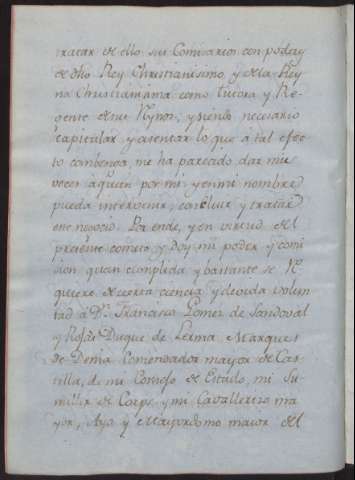 tratar de ello sus Comisarios con poderes
de dho Rey Christianisimo y dela Rey
na Christianisima como tutora y Re-
gente de sus Reynos, y siendo necesario
capitular y asentar lo que á tal efec
to conbenga, me ha parecido dar mis
veces á quien por mi y en mi nombre
pueda intervenir, concluir y tratar
este negocio. Por ende, y en virtud del
presente cometo y doy mi poder y comi
sion quan cumplida y bastante se Re
quiere de cierta ciencia y devida volun
tad á Dn. Francisco Gomez de Sandoval
y Rojas Duque de Lerma Marques
de Denia Comendador mayor de Cas
tilla, de mi Consejo de Estado, mi Su
miller de Corps y mi Cavallerizo ma
yor, Ayo y Mayordomo maior del